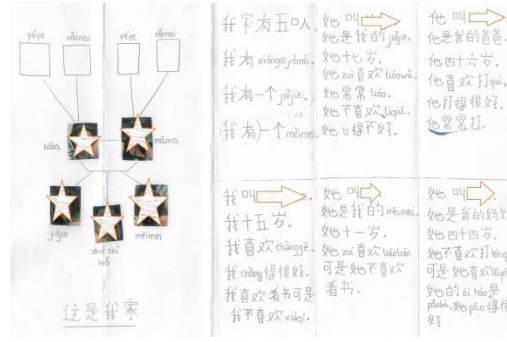 yéye nǎinai yéye nǎinai
bàba māma
jiějie mèimei
zhè shì
wǒ
这是我家
我家有五口人。
我有 xiōngdìjiěmèi.
我有一个 jiějie.
(我有)一个 mèimei.
她叫
她是我的 jiějie.
她十七岁。
她 zuì 喜欢
她常常
她不喜欢
她 得不好。
他叫
他是我的爸爸。
他四十六岁。
他喜欢打 qiú.
他打得很好。
他常常打.
我叫
我十五岁。
我喜欢 chànggē.
我 chàng 得很好.
我喜欢看书可是
我不喜欢 xiàqí.
她叫
她是我的 mèimei.
她十一岁。
她 zuì 喜欢
可是她不喜欢
看书.
她叫
她是我的妈妈
她四十四岁.
她不喜欢打
可是她喜欢
她的 ài hào 是
pǎobù, 她 pǎo 得很
好